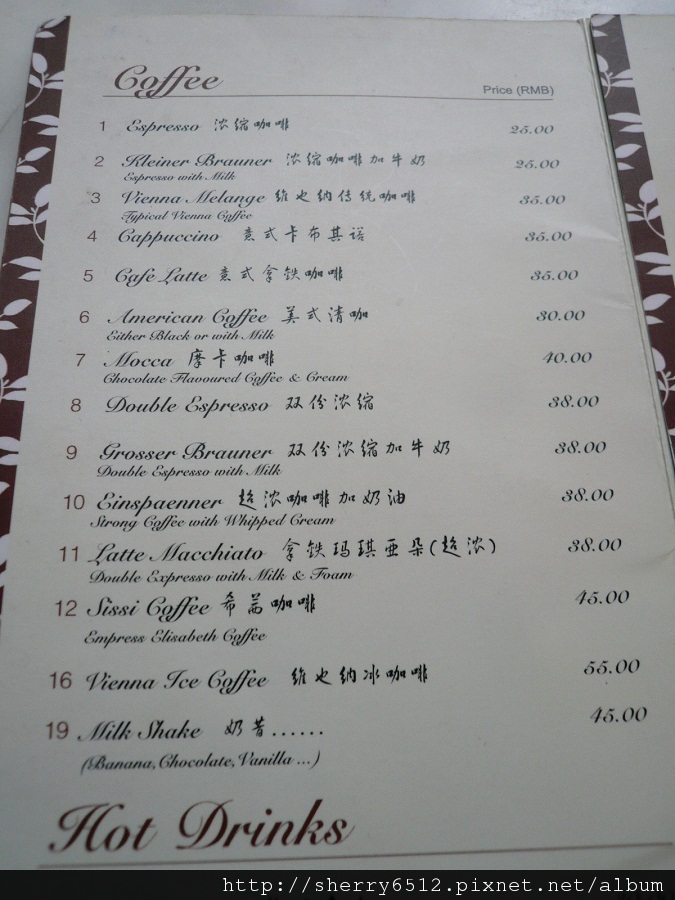 Coffee Price (RMB)
1 Espresso 浓缩咖啡 25.00
2 Kleiner Brauner 浓缩咖啡加牛奶 25.00
Espresso with Milk
3 Vienna Melange 维也纳传统咖啡 35.00
Typical Vienna Coffee
4 Cappuccino 意式卡布其诺 35.00
5 Cafe Latte 意式拿铁咖啡 35.00
6 American Coffee 美式清咖 30.00
Either Black or with Milk
7 Mocca 摩卡咖啡 40.00
Chocolate Flavoured Coffee & Cream
8 Double Espresso 双份浓缩 38.00
9 Grosser Brauner 双份浓缩加牛奶 38.00
Double Espresso with Milk
10 Einspaenner 超浓咖啡加奶油 38.00
Strong Coffee with Whipped Cream
11 Latte Macchiato 拿铁玛琪亚朵(超浓) 38.00
Double Expresso with Milk & Foam
12 Sissi Coffee 希茜咖啡 45.00
Empress Elisabeth Coffee
16 Vienna Ice Coffee 维也纳冰咖啡 55.00
19 Milk Shake 奶昔...... 45.00
(Banana, Chocolate, Vanilla ...)
Hot Drinks
http://sherry6512.pixnet.net/album